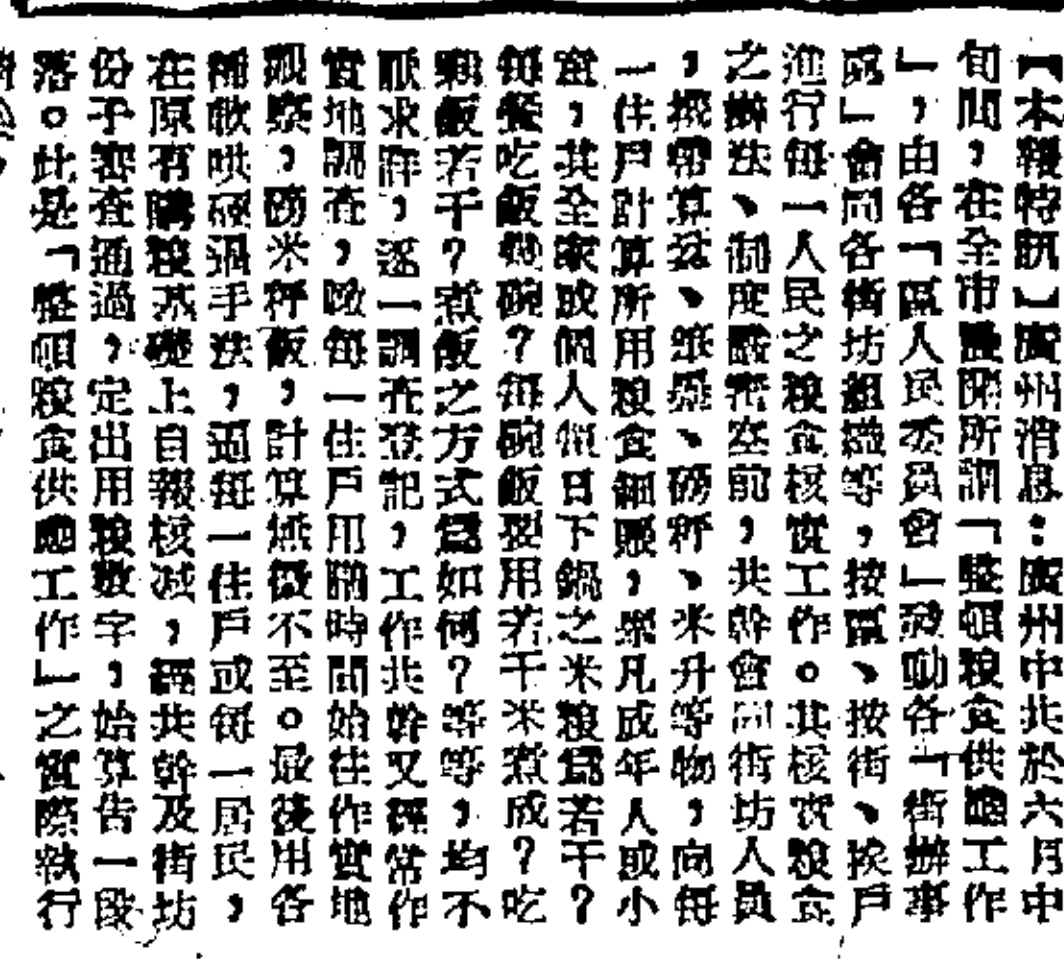 【本報特訊】廣州消息：廣州中共於六月中
旬間，在全市展開所謂「整頓粮食供應工作
」，由各「區人民委員會」發動各「街辦事
處」會同各街坊組織等，按區、按街、挨戶
進行每一人民之粮食核實工作。其核實粮食
之辦法、制度嚴密空前，共幹會同街坊人員
，携帶算盆、紙墨、磅秤、米升等物，向每
一住戶計算所用粮食細賬，舉凡成年人或小
童，其全家成個人每日下鍋之米粮為若干？
每餐吃飯幾碗？每碗飯要用若干米煮成？吃
粥飯若干？煮飯之方式為如何？等等，均不
厭求詳，逐一調查登記，工作共幹又經常作
實地調查，臨每一住戶用膳時間始往作實地
視察，磅米秤飯，計算無微不至。最後用各
種軟哄硬逼手法，逼每一住戶或每一居民，
在原有購粮基礎上自報核減，經共幹及街坊
份子審查通過，定出用粮數字，始算告一段
落。此是「整頓粮食供應工作」之實際執行